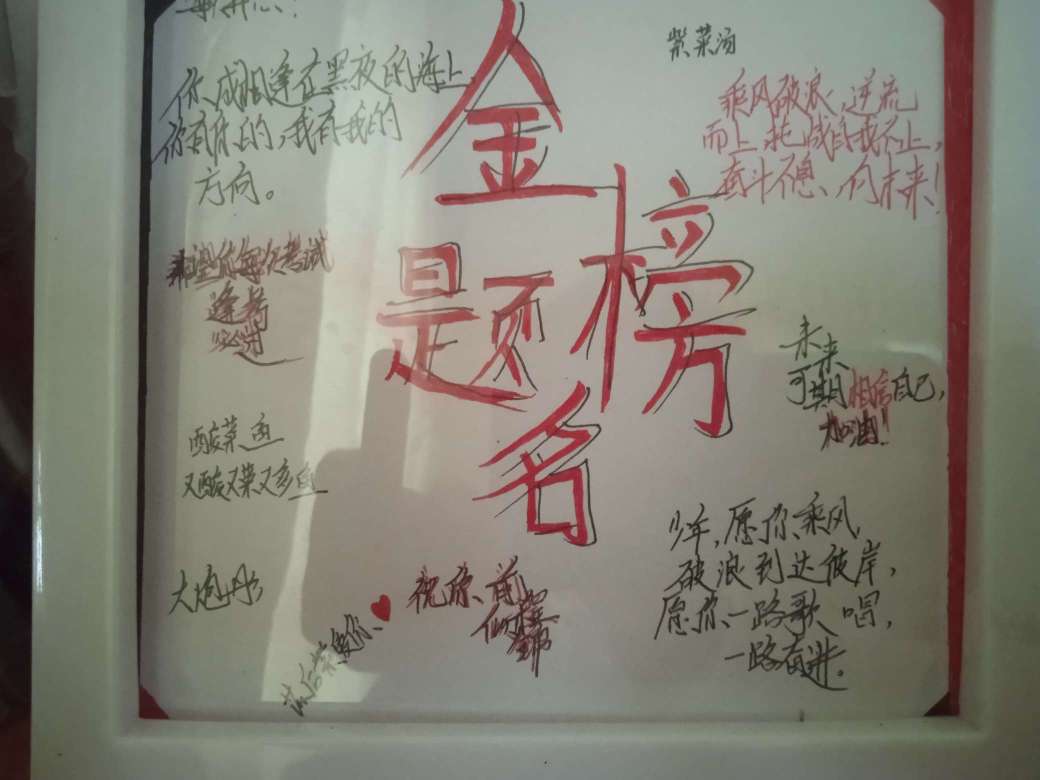 你我相逢在黑夜的海上,
你有你的,我有我的
方向。
希望你每次考试
逢考
必过
酸菜鱼
又酸又菜又多鱼
金
榜
题
名
紫菜汤
乘风破浪,逆流
而上
奋斗不息、向未来!
未来
可期相信自己,
加油!
祝你、前
似锦
少年,愿你、乘风
破浪到达彼岸,
愿你、一路歌唱,
一路奋进。